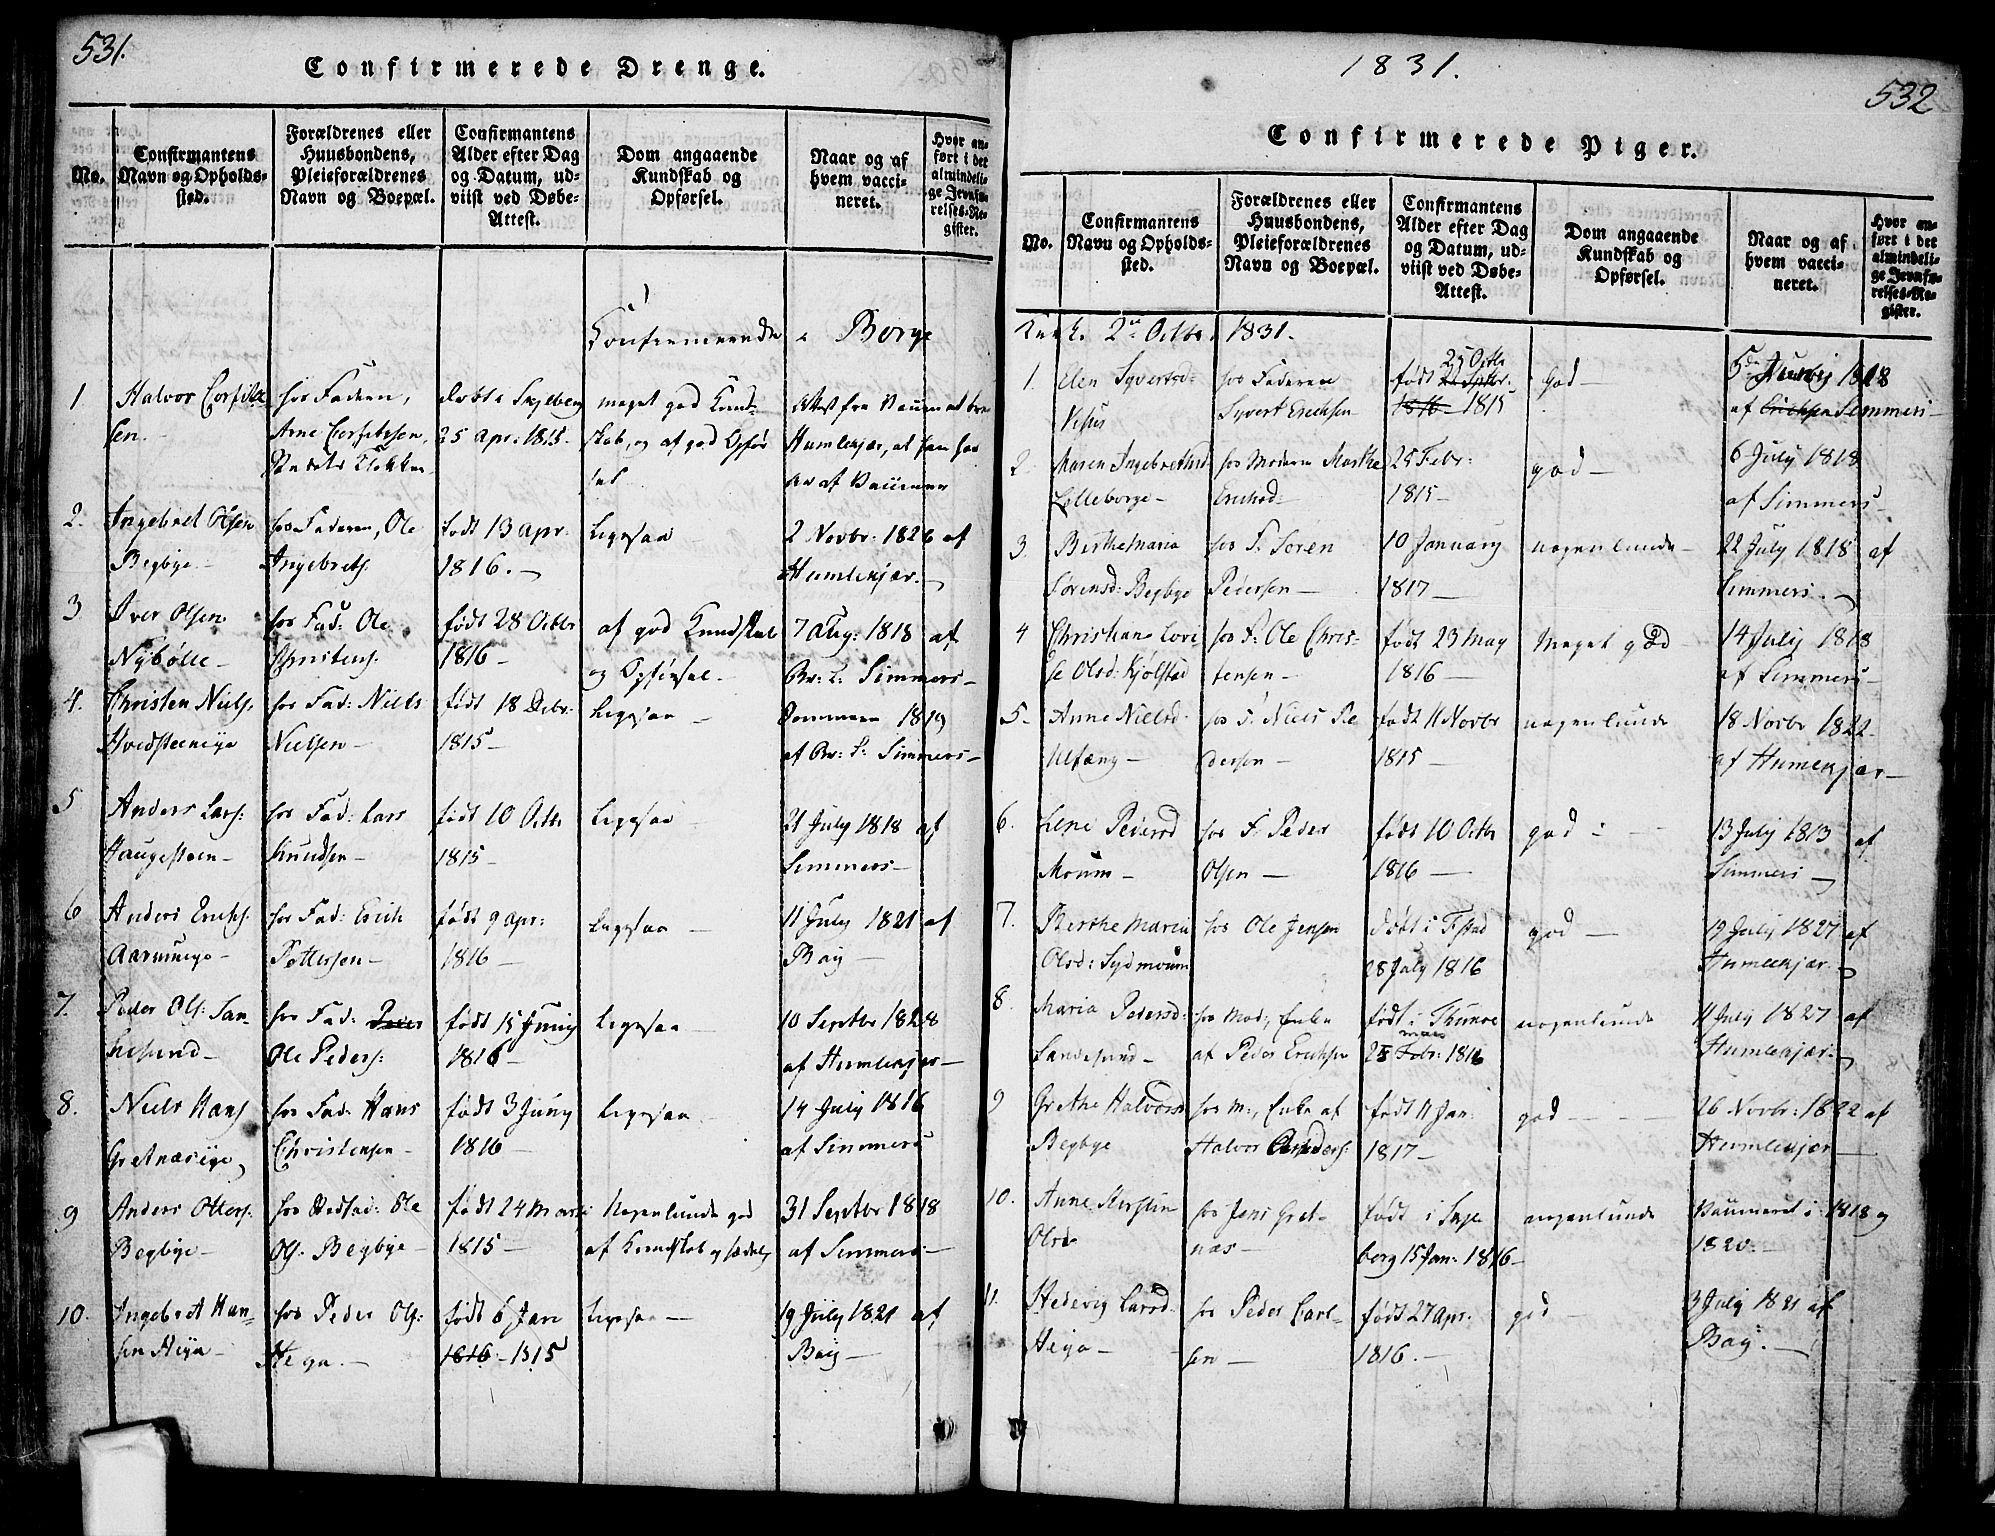 531.
Confirmerede Drenge.
No.
Confirmantens
Navn og Opholds-
sted.
Forældrenes eller
Huusbondens,
Pleieforældrenes
Navn og Boepæl.
Confirmantens
Alder efter Dag
og Datum, ud-
viist ved Døbe-
Attest.
Dom angaaende
Kundskab og
Opførsel.
Naar og af
hvem vacci-
neret.
Hvor an-
ført i det
almindeli-
ge Jevnfø-
relses-Re-
gister.
Borge
1
Halvor
sen.
hos Faderen,
Arne
døbt i Skjeberg
25 Apr: 1815
meget god Kund-
skab, og af god Opfør
sel
Attest fra
Humlekjær, at han har
2.
Ingebret Olsen
Begbye
hos Faderen, Ole
Ingebrets.
født 13 Apr:
1816.
Ligesaa
2 Novbr: 1826 af
Humlekjær.
3
Iver Olsen
Nybølle
hos Fad: Ole
Christens.
født 28 Octbr
1816
af god Kundskab
og Opførsel.
7 Aug: 1818 af
Simmers
4.
Christen Niels.
Hvidsteeneje
hos Fad: Niels
Nielsen
født 18 Debr:
1815
Ligesaa
Sommeren 1819
af Simmers
5
Anders Lars:
Haugesteen
hos Fad: Lars
Knudsen
født 10 Octbr
1815
Ligesaa
21 July 1818 af
Simmers
6
Anders Erichs.
hos Fad: Erich
Pettersen
født 9 Apr:
1816
Ligesaa
11 July 1821 af
Bay
7.
Peder Ols: San-
desund
hos Fad: Peder
Ole Peders:
født 15 Juny
1816
Ligesaa
10 Septbr 1828
af Humlekjær
8.
Niels Hans
Gretnæseje
hos Fad: Hans
Christensen
født 3 Juny
1816
Ligesaa
14 July 1816
af Simmers
9
Anders Otters:
Begbye
hos Stedfad: Ole
Ols. Begbye
født 24 Marts
1815
Nogenlunde god
af Kundskab og Sæder
31 Septbr 1818
af Simmers
10.
Ingebret Han-
sen Heja
hos Peder Ols:
Heja.
født 6 Jan
1816 - 1815
Ligesaa
19 July 1821 af
Bay
1831.
532
Confirmerede Piger.
No.
Confirmantens
Navn og Opholds-
sted.
Forældrenes eller
Huusbondens,
Pleieforældrenes
Navn og Boepæl.
Confirmantens
Alder efter Dag
og Datum, ud-
viist ved Døbe-
Attest.
Dom angaaende
Kundskab og
Opførsel.
Naar og af
hvem vacci-
neret.
Hvor an-
ført i det
almindeli-
ge Jevnfø-
relses-Re-
gister.
Kirke 2den Octbr. 1831.
1.
Elen Syvertsd:
hos Faderen
Syvert Erichsen
født 25 Octbr
1816 1815
God
5 1818
af Simmers
2.
Maren Ingebrethsd
Lilleborge
hos Moderen Marthe
Erichsd:
25 Febr:
1815
god
6 July 1818
af Simmers
3.
Berthe Maria
Sørensd: Begbye
hos F. Søren
Pedersen
10 January
1817
nogenlunde
22 July 1818 af
Simmers.
4
Christiane Lovi-
se Olsd: Kjølstad
hos F: Ole Chris-
tensen
født 23 May
1816
Meget god
14 July 1818
af Simmers
5.
Anne Nielsd.
Ulfæng
hos F. Niels Pe
dersen
født 11 Novbr
1815
nogenlunde
18 Novbr 1822
af Humlekjær
6.
Lene Pedersd
Moum
hos F. Peder
Olsen
født 10 Octbr
1816
god
13 July 1813 af
Simmers
7.
Berthe Maria
Olsd: Sydmoum
hos Ole Jensen
Døbt i Fstad
28 July 1816
god
19 July 1827 af
Humlekjær.
8.
Maria Pedersd:
Sandesund
hos Mod:, Enke
af Peder Erichsen
født i Thunøe
28 Febr: 1816
nogenlunde
11 July 1827 af
Humlekjær.
9
Grethe Halvorsd
Begbye
hos M:, Enke af
Halvor Anders:
født 11 Jan:
1817
god
26 Novbr: 1822 af
Humlekjær
10.
Anne Kirstine
Olsd
hos Jens Gret-
næs
født i Skje
berg 15 Jan: 1816
nogenlunde
Vaccineret i 1818 og
1820.
11.
Hedevig Larsd.
Heja
hos Peder Carl-
sen
født 27 Apr.
1816.
god
3 July 1821 af
Bay.